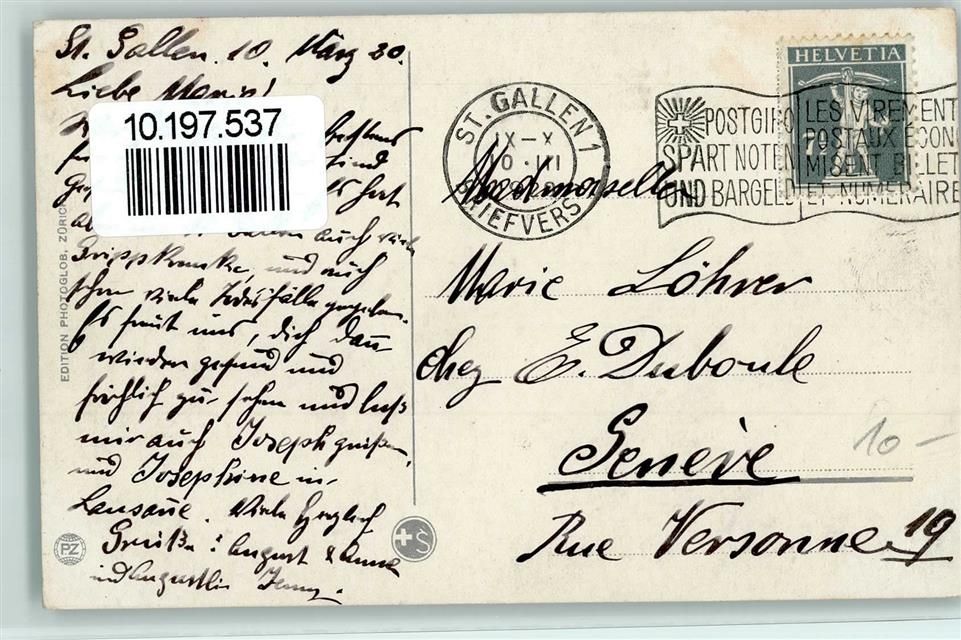 St. Gallen. 10. März 20.
Liebe Marie!
10.197.537
auch viele
Grippkranke, und auch
schon viele Todesfälle gegeben.
Es freut uns, dich dann
wieder gesund und
fröhlich zu sehen und laß
mir auch Joseph grüßen,
und Josephine in
Lausane. Viele herzlich
Grüße: August & Anna
und Augustli Jenny.
EDITION PHOTOGLOB, ZÜRIC
PZ
S
ST. GALLEN 1
IX-X
BRIEFVERS
POSTGIRO
SPART NOTEN
UND BARGELD
LES VIREMENT
POSTAUX ECON
MISENT BILLET
ET NUMERAIRE
HELVETIA
Mademoiselle
Marie Löhrer
chez E. Duboule
Genève
Rue Versonne 19
10-